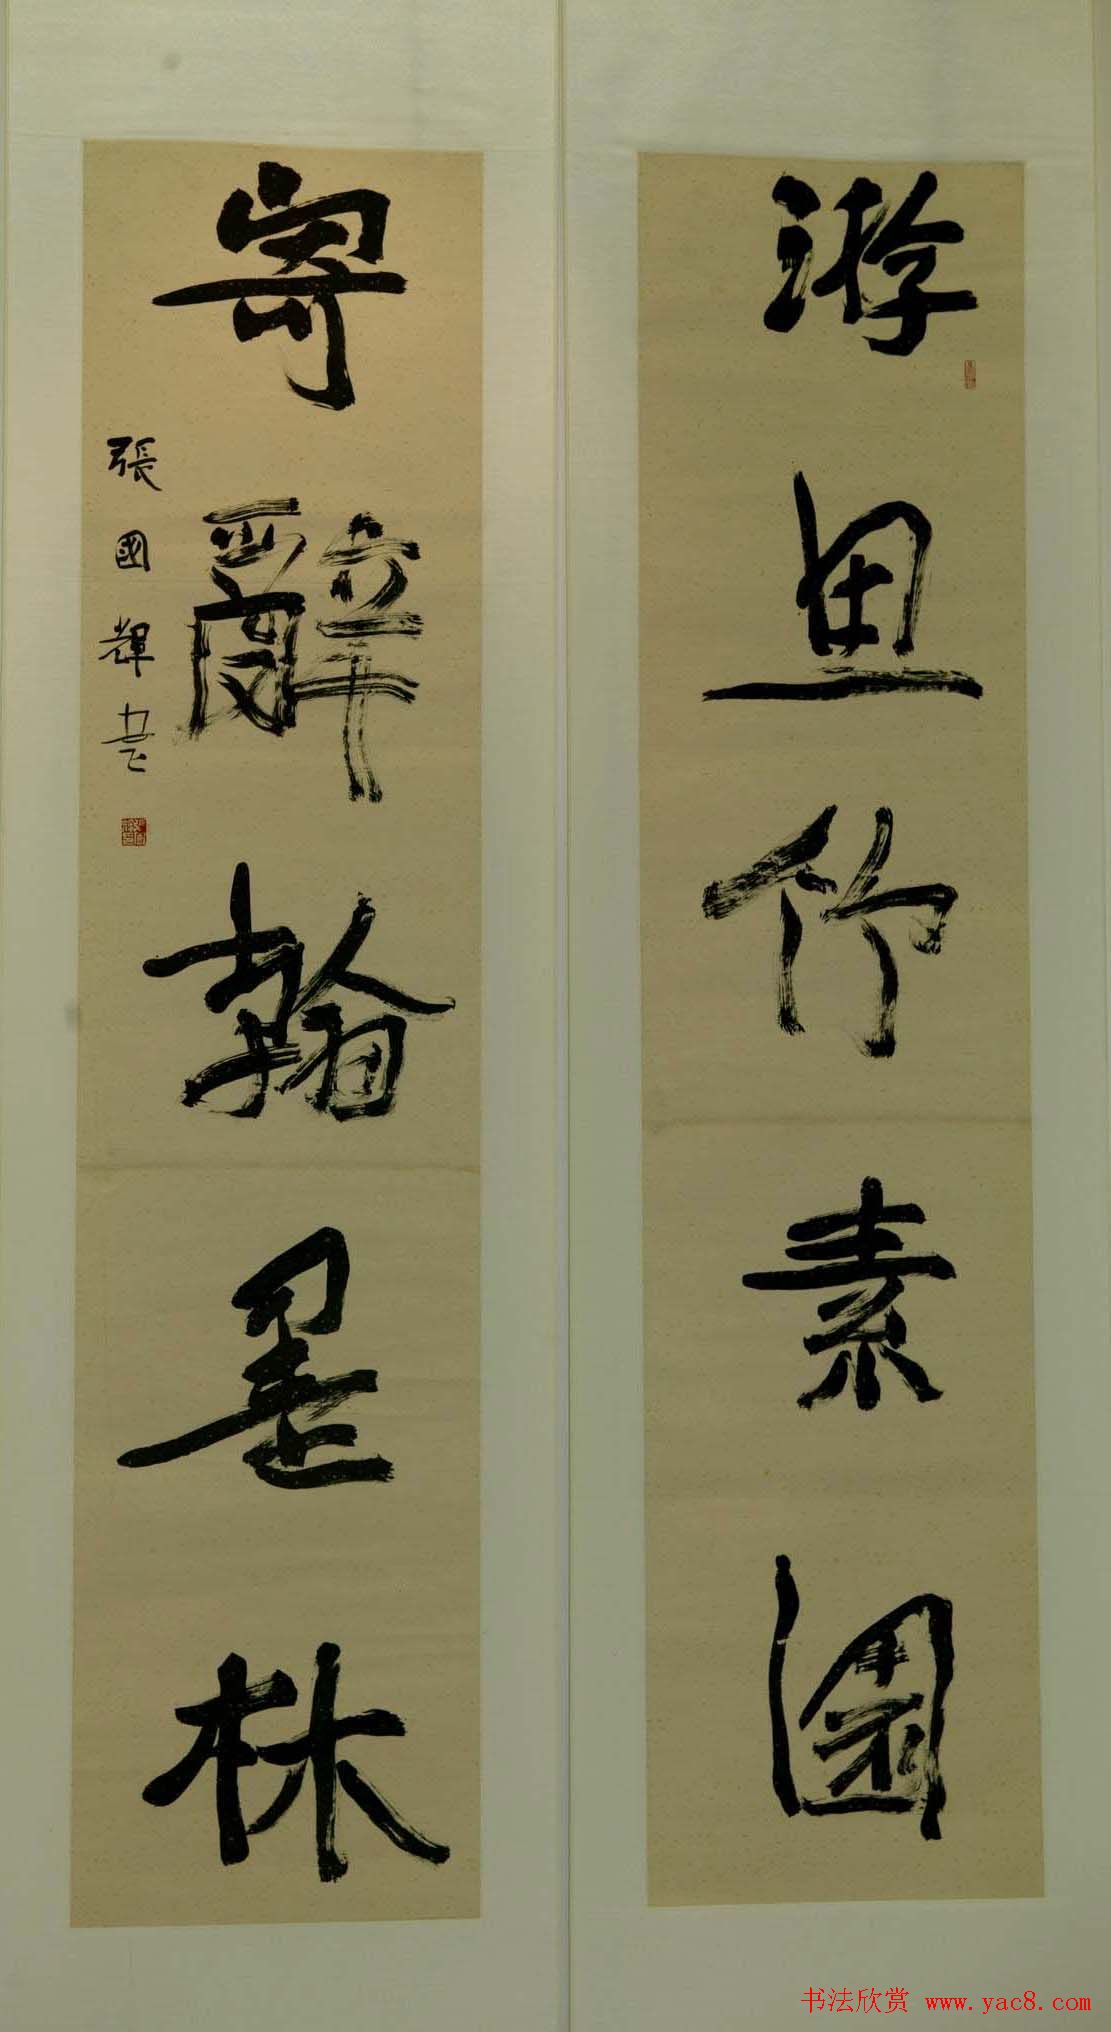 游思竹素園
寄辭翰墨林
張國輝書
书法欣赏 www.yac8.com